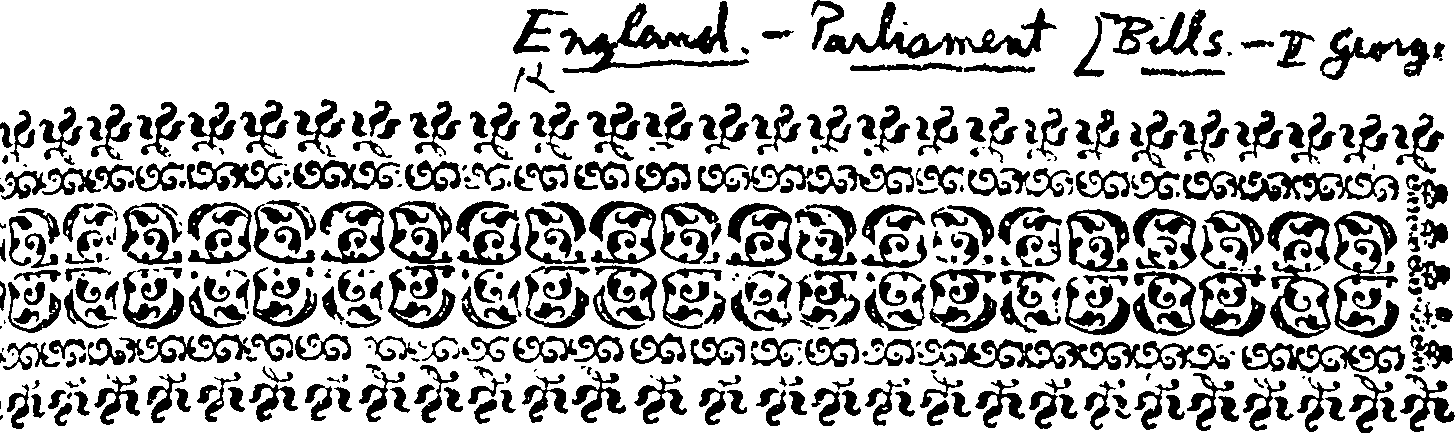 England. - Parliament [Bills. - II Georg.